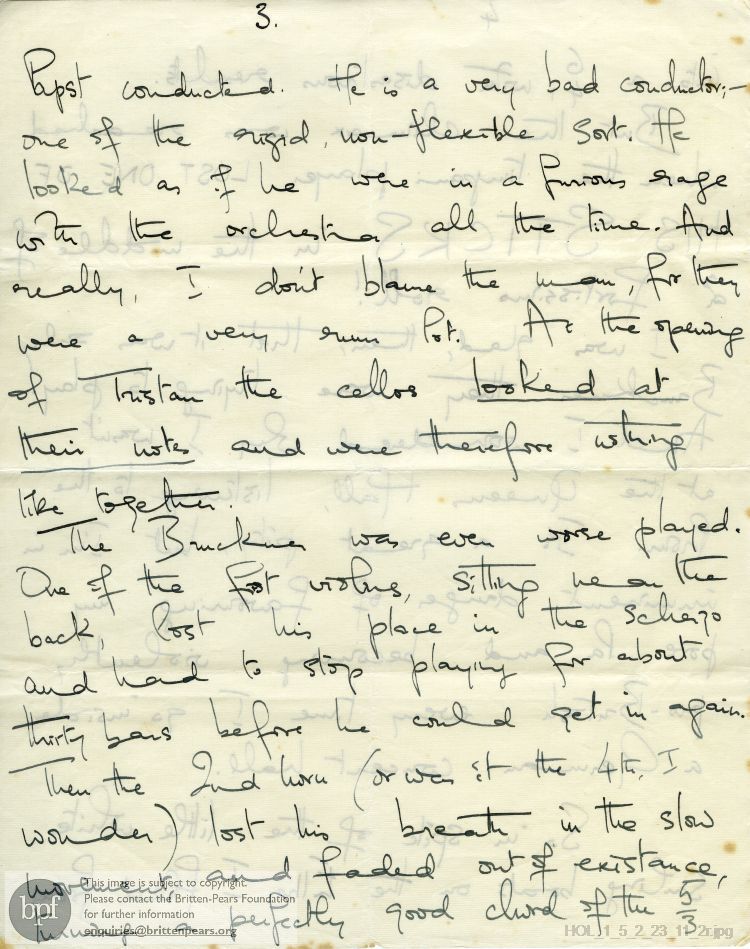 3.
Papst conducted. He is a very bad conductor;-
one of the rigid, non-flexible sort. He
looked as if he were in a furious rage
with the orchestra all the time. And
really, I don't blame the man, for they
were a very rum lot. At the opening
of Tristan the cellos looked at
their notes and were therefore nothing
like together.
The Bruckner was even worse played.
One of the first violins, sitting near the
back, lost his place in the Scherzo
and had to stop playing for about
thirty bars before he could get in again.
Then the 2nd horn (or was it the 4th, I
wonder) lost his breath in the slow
movement, and faded out of existence,
turning a perfectly good chord of the 5/3
bpf
This image is subject to copyright.
Please contact the Britten-Pears Foundation
for further information
enquiries@brittenpears.org
HOL_1_5_2_23_11_2r.jpg